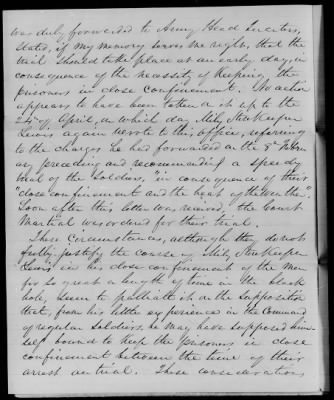 was duly forwarded to Army Head Quarters,
stated, if my memory serves me right, that the
trial should take place at an early day, in
consequence of the necessity of keeping the
prisoners in close confinement. No action
appears to have been taken on it up to the
24th of April, on which day Mily Storekeeper
Lewis again wrote to this office, referring
to the charges he had forwarded on the 3d
preceding and recommending a speedy
trial of the soldiers, "in consequence of their
"close confinement and the heat of the weather".
Soon after this letter was received, the Court
Martial was ordered for their trial.
These Circumstances, although they do not
fully justify the course of Mily Storekeeper
Lewis in his close confinement of the men
for so great a length of time in the black
hole, seem to palliate it on the supposition
that, from his little experience in the Command
of regular Soldiers, he may have supposed him-
self bound to keep the prisoners in close
confinement between the time of their
arrest and trial. These considerations,